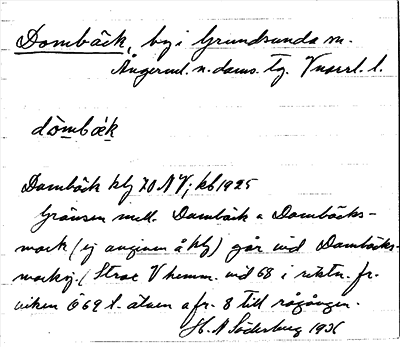 Dombäck, by i Grundsunda sn.
Ångerml. n. doms. tg. Vnorrl. l.
dòmbæk
Dombäck kbg 70 NV; kb 1925
Gränsen mell. Dombäck o Dombäcks-
mark (ej angiven å kbg) går vid Dombäcks-
markg. / Strax V hemm. vid 68 i rektn. fr.
viken Ö 69 t. älven o fr. 8 till rågången.
H. N Söderberg 1931